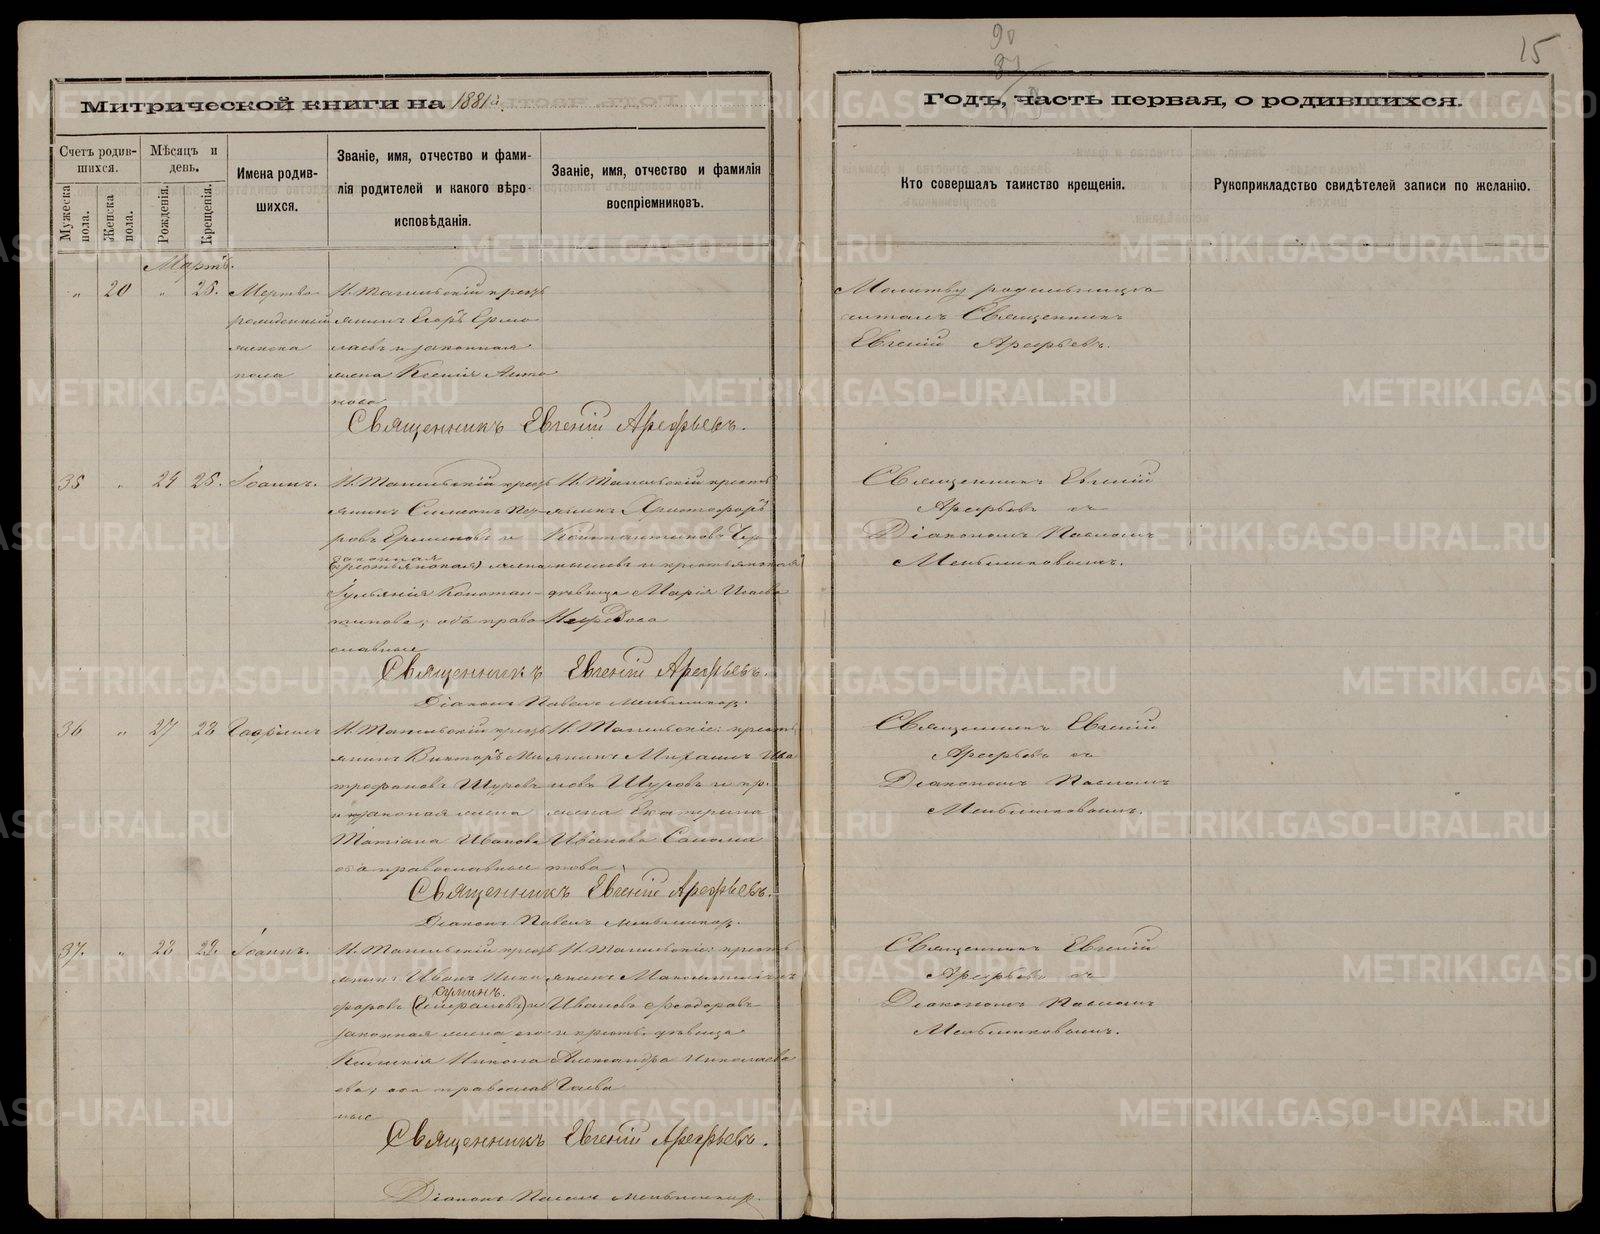 90
83
15
Митрической книги на 1881й
Годъ, часть первая, о родившихся.
Счетъ родив-
шихся.
Мужеска пола.
Женска пола.
Мѣсяцъ и
день.
Рожденія.
Крещенія.
Имена родив-
шихся.
Званіе, имя, отчество и фами-
лія родителей и какого вѣро-
исповѣданія.
Званіе, имя, отчество и фамилія
воспріемниковъ.
Кто совершалъ таинство крещенія.
Рукоприкладство свидѣтелей записи по желанію.
Мартъ.
" 20 " 25.
Мертво
рожденный
женска
пола
Н. Тагильскій кресть
янинъ Егоръ Ермо
лаевъ и законная
жена Ксенія Анто
нова
Молитву родильницѣ
читалъ Священникъ
Евгеній Арефьевъ.
Священникъ Евгеній Арефьевъ.
35 " 24 25. Іоаннъ.
Н. Тагильскій кресть
янинъ Симеонъ
ровъ и
законная
жена
Іуліанія Констан-
тинова; оба право
славные
Н. Тагильскій кресть
янинъ Христофоръ
Константиновъ
и крестьянская
дѣвица Марія Исаева
Священникъ Евгеній
Арефьевъ съ
Діакономъ Павломъ
Меньшиковымъ.
Священникъ Евгеній Арефьевъ.
Діаконъ Павелъ Меньшиковъ.
36 " 27 28 Гавріилъ
Н. Тагильскій кресть
янинъ Викторъ Ми
трофановъ Шуровъ
и законная жена
Татіана Иванова
оба православные
Н. Тагильскіе: кресть
янинъ Михаилъ Ива
новъ Шуровъ и кр.
жена Екатерина
Иванова
Священникъ Евгеній
Арефьевъ съ
Діакономъ Павломъ
Меньшиковымъ.
Священникъ Евгеній Арефьевъ.
Діаконъ Павелъ Меньшиковъ.
37. " 28 29. Іоаннъ.
Н. Тагильскій кресть
янинъ Иванъ Ники
форовъ и
законная жена его
оба православ
ные
Н. Тагильскіе: кресть
янинъ Максимиліанъ
Ивановъ Феодоровъ
и кресть. дѣвица
Александра Николаева
Священникъ Евгеній
Арефьевъ съ
Діакономъ Павломъ
Меньшиковымъ.
Священникъ Евгеній Арефьевъ.
Діаконъ Павелъ Меньшиковъ.
METRIKI.GASO-URAL.RU